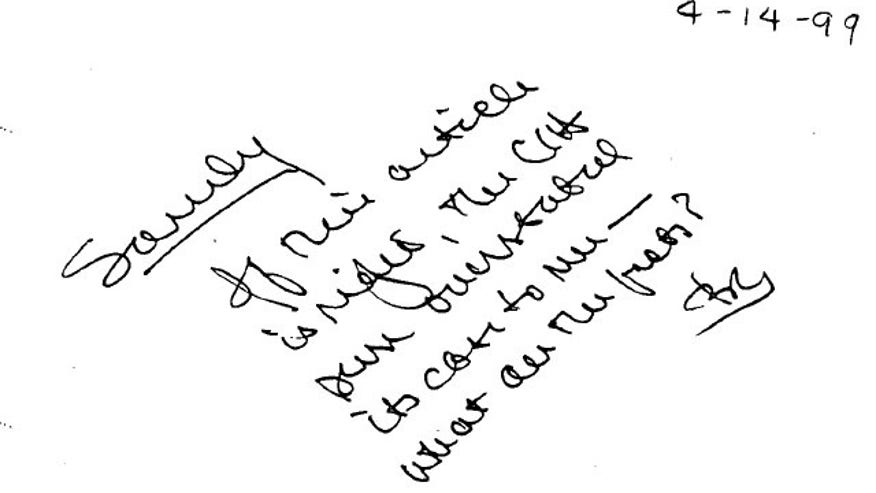 4-14-99
Sandy
If this article
is right, the CIA
sure overstated
its case to me —
what are the facts?